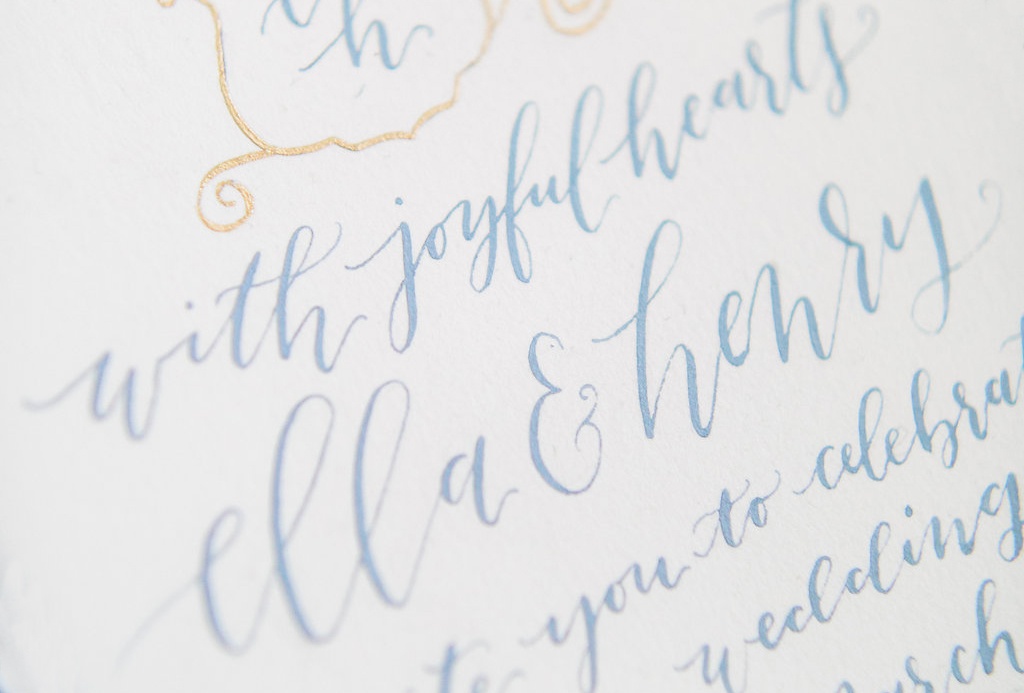 h
with joyful hearts
ella & henry
you to celebrat
wedding